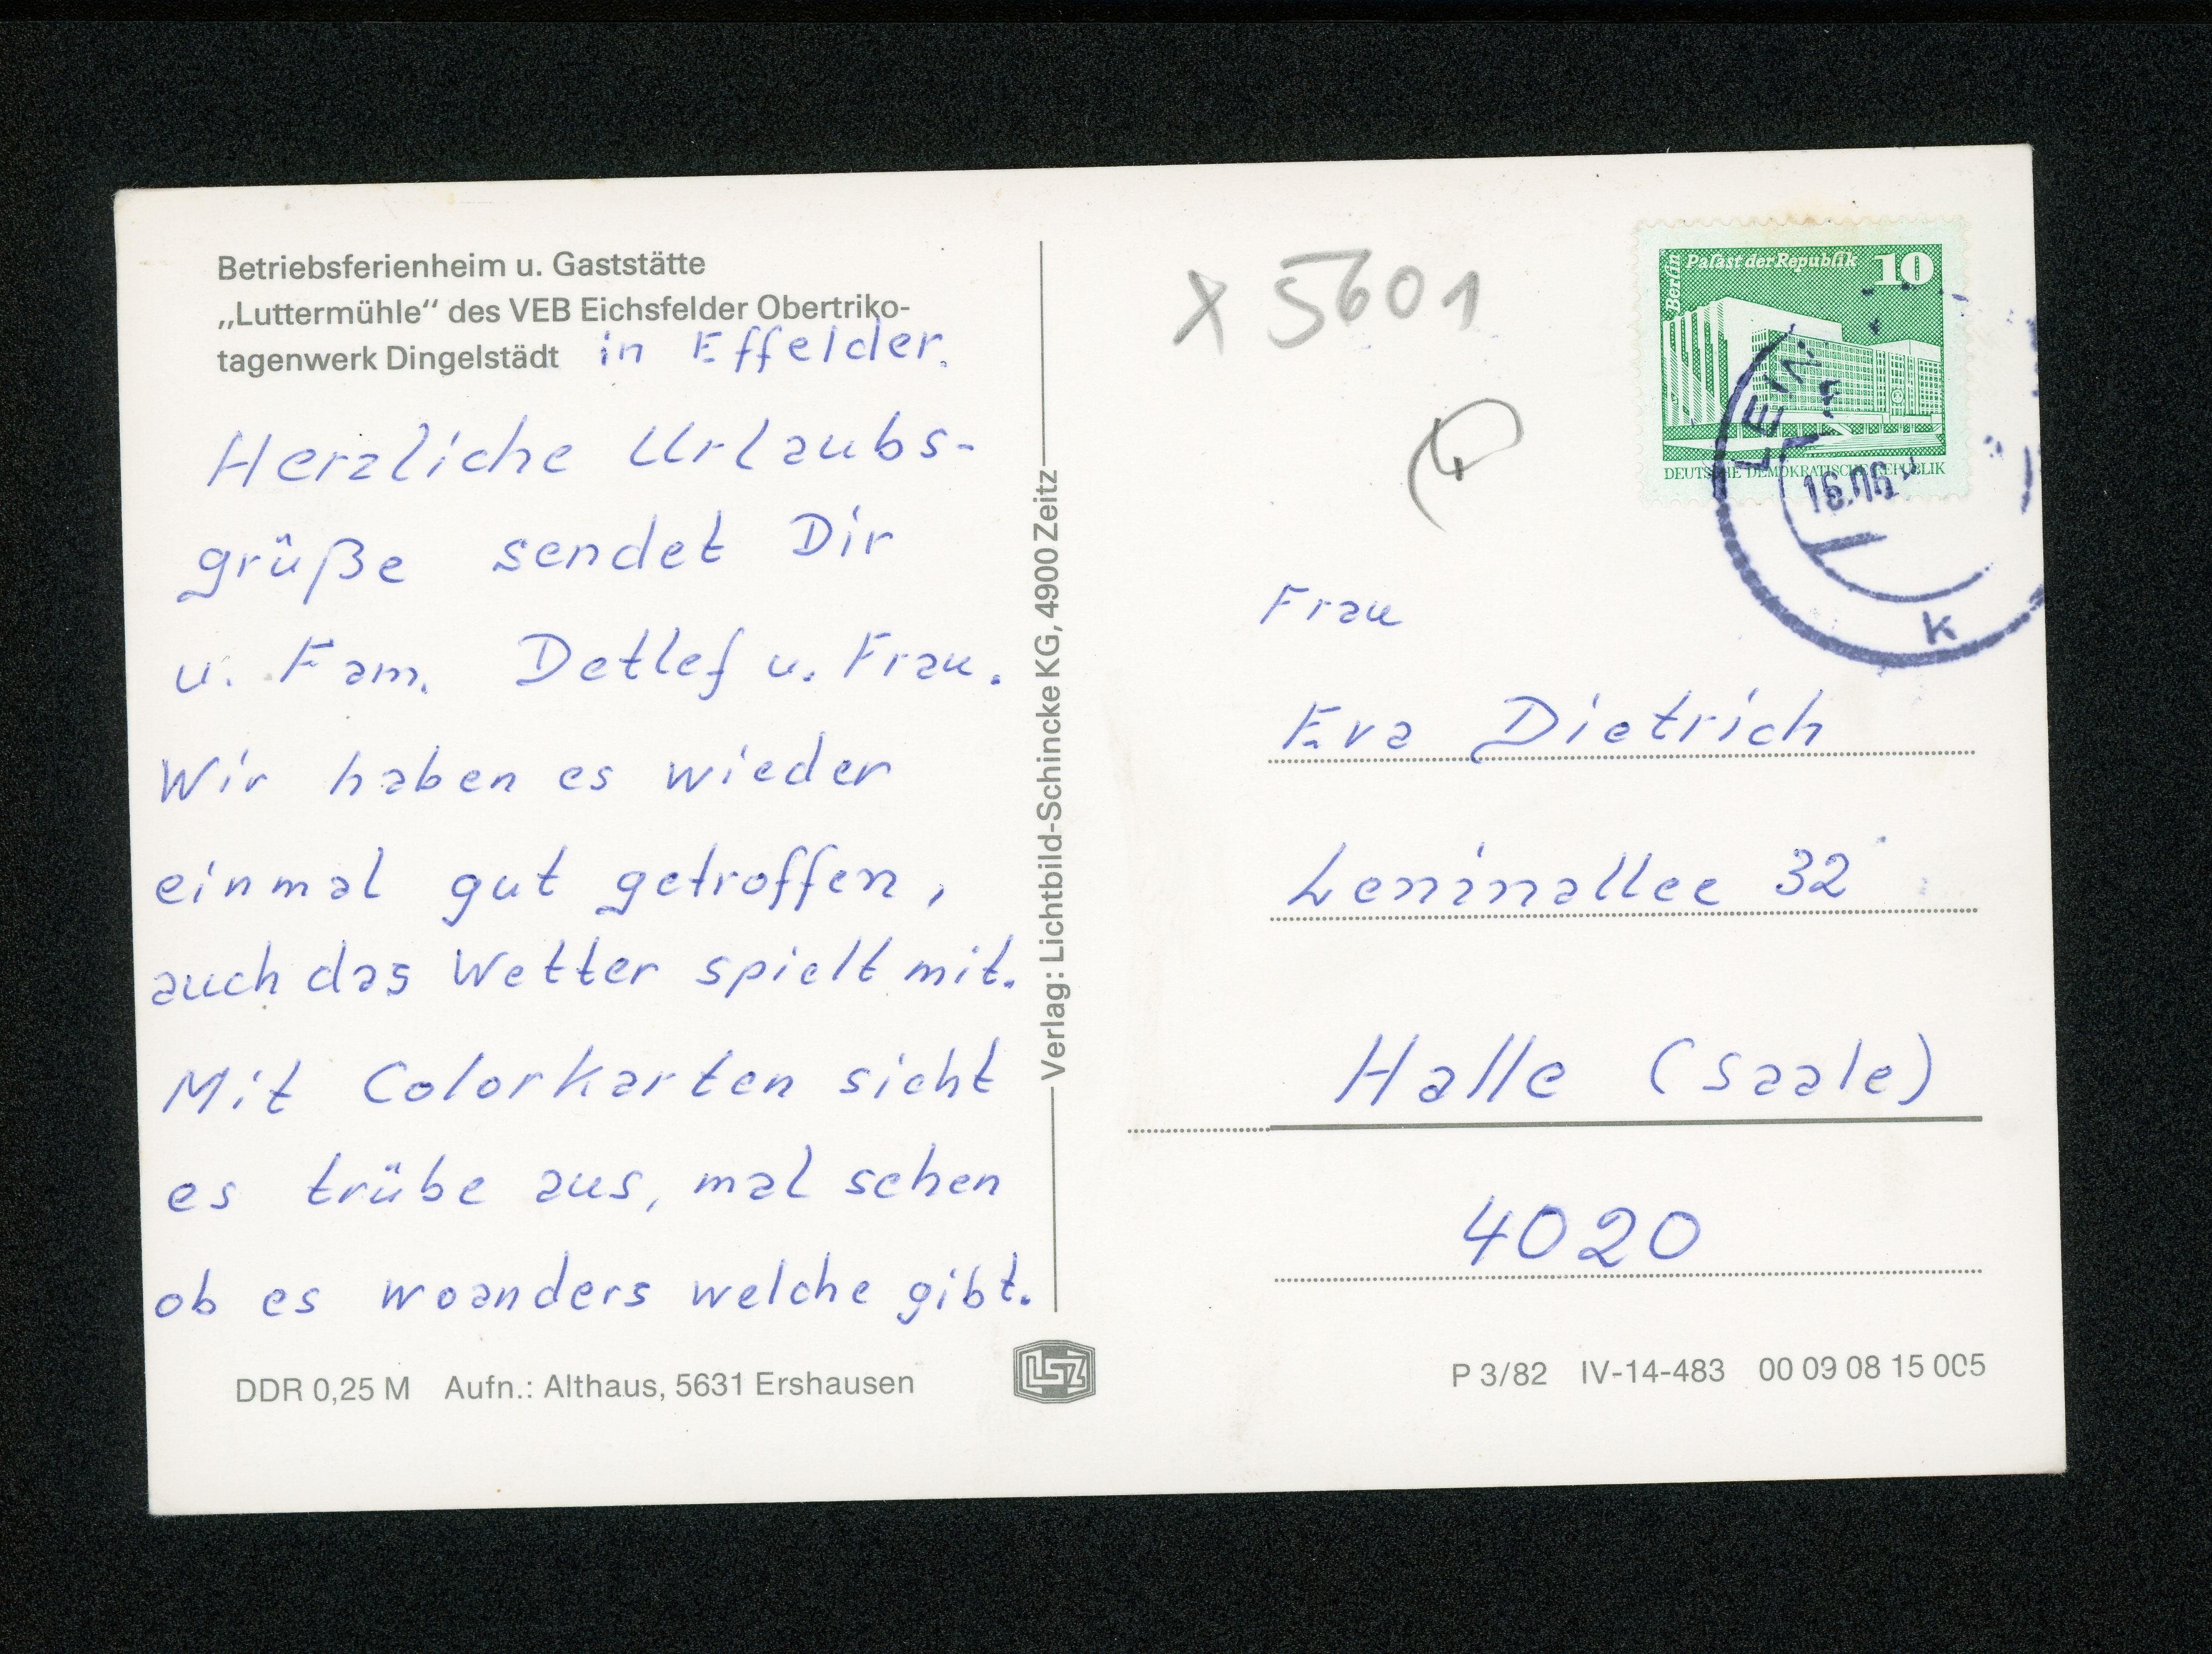 Betriebsferienheim u. Gaststätte
„Luttermühle“ des VEB Eichsfelder Obertriko-
tagenwerk Dingelstädt in Effelder.
Herzliche Urlaubs-
grüße sendet Dir
u. Fam. Detlef u. Frau.
Wir haben es wieder
einmal gut getroffen,
auch das Wetter spielt mit.
Mit Colorkarten sieht
es trübe aus, mal sehen
ob es woanders welche gibt.
DDR 0,25 M Aufn.: Althaus, 5631 Ershausen
Verlag: Lichtbild-Schincke KG, 4900 Zeitz
LSZ
X 5601
Berlin Palast der Republik 10
DEUTSCHE DEMOKRATISCHE REPUBLIK
16.06
k
Frau
Eva Dietrich
Leninallee 32
Halle (Saale)
4020
P 3/82 IV-14-483 00 09 08 15 005